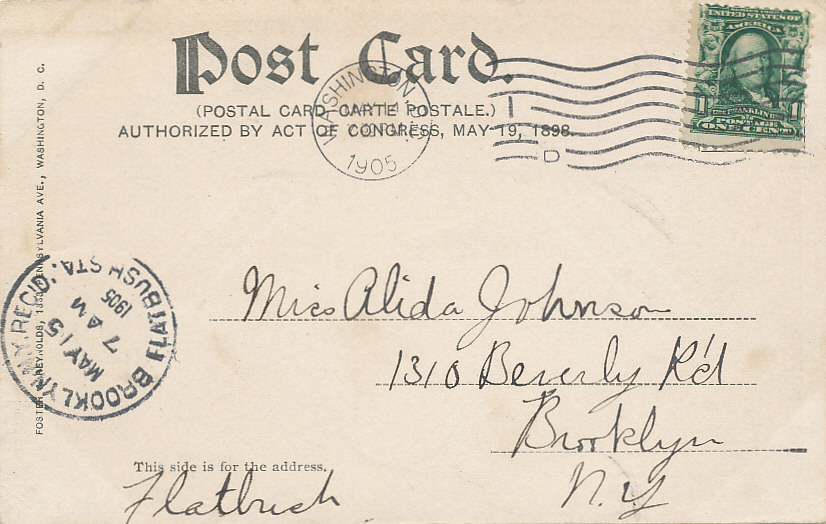 Post Card.
(POSTAL CARD-CARTE POSTALE.)
AUTHORIZED BY ACT OF CONGRESS, MAY 19, 1898.
UNITED STATES OF
AMERICA
FRANKLIN
1 1
POSTAGE
ONE CENT
WASHINGTON
MAY 14
1905
D
FOSTER & REYNOLDS, 1333 PENNSYLVANIA AVE., WASHINGTON, D. C.
BROOKLYN, N.Y. REC'D.
FLATBUSH STA.
MAY 15
7 AM
1905
Miss Alida Johnson
1310 Beverly R'd
Brooklyn
N.Y
This side is for the address.
Flatbush